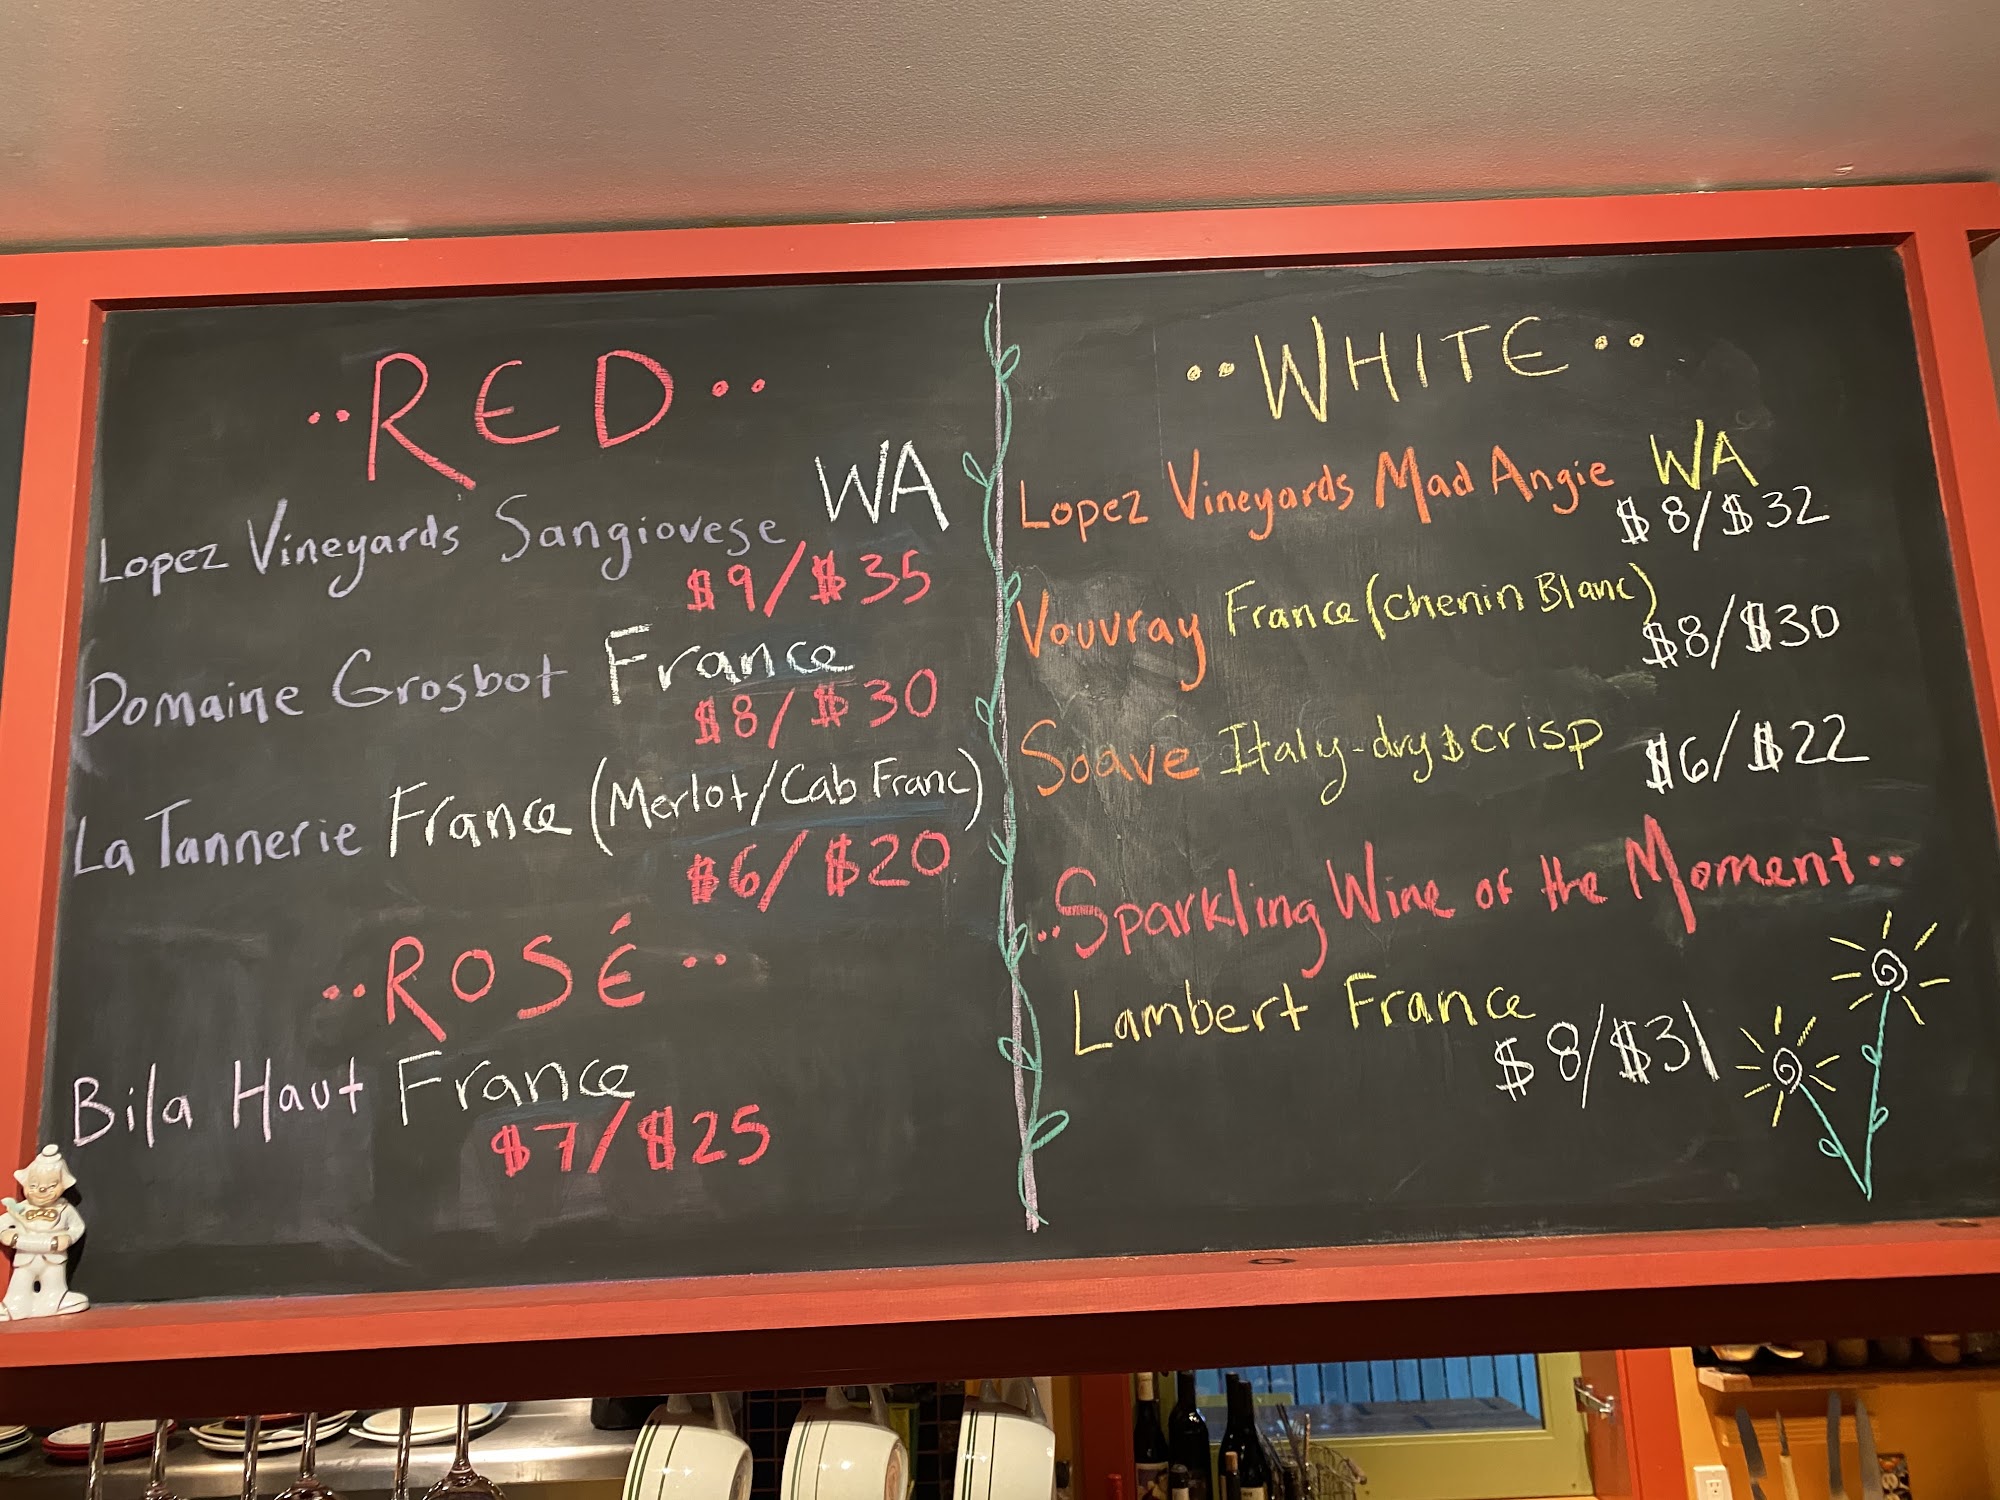 ..RED..
Lopez Vineyards Sangiovese WA
$9/$35
Domaine Grosbot France
$8/$30
La Tannerie France (Merlot/Cab Franc)
$6/$20
..ROSÉ..
Bila Haut France
$7/$25
..WHITE..
Lopez Vineyards Mad Angie WA
$8/$32
Vouvray France (Chenin Blanc)
$8/$30
Soave Italy-dry & crisp $6/$22
..Sparkling Wine of the Moment..
Lambert France
$8/$31